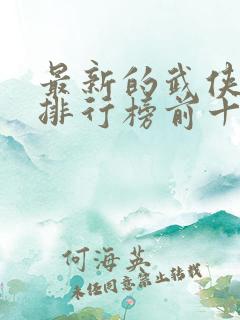 最新的武侠
排行榜前十
何海英
未经同意禁止转载